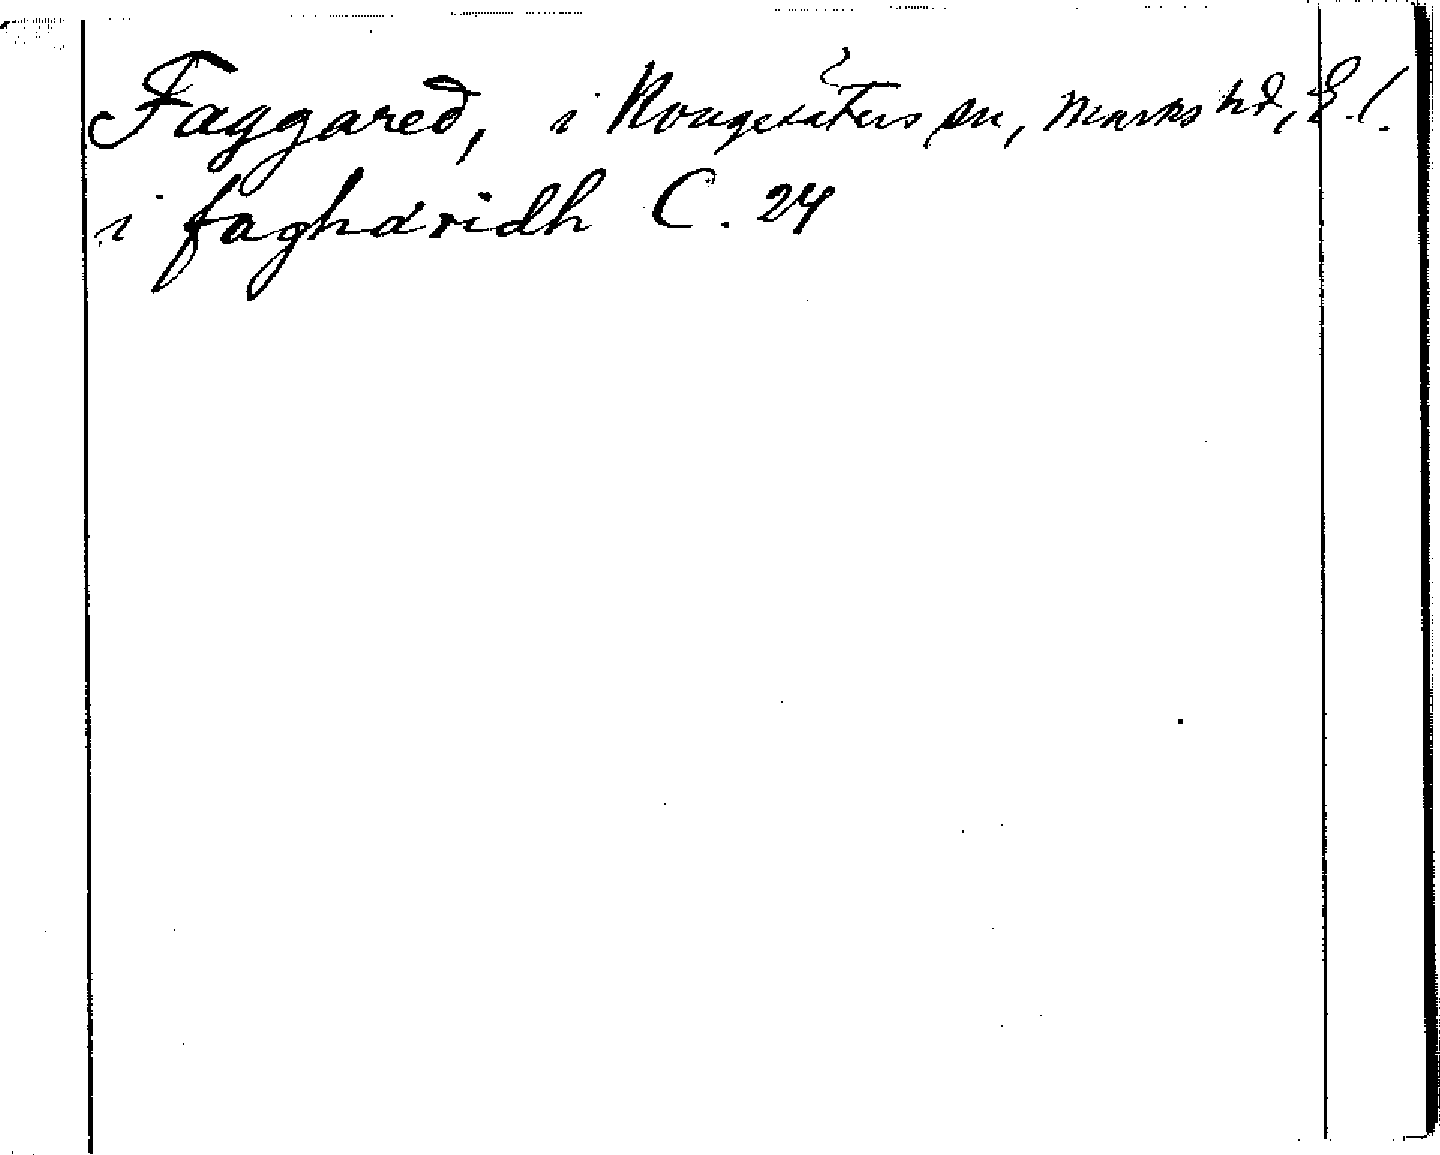 Faggared, i Rougesäters sn, Marks hd, E. l.
i faghäridh C. 24